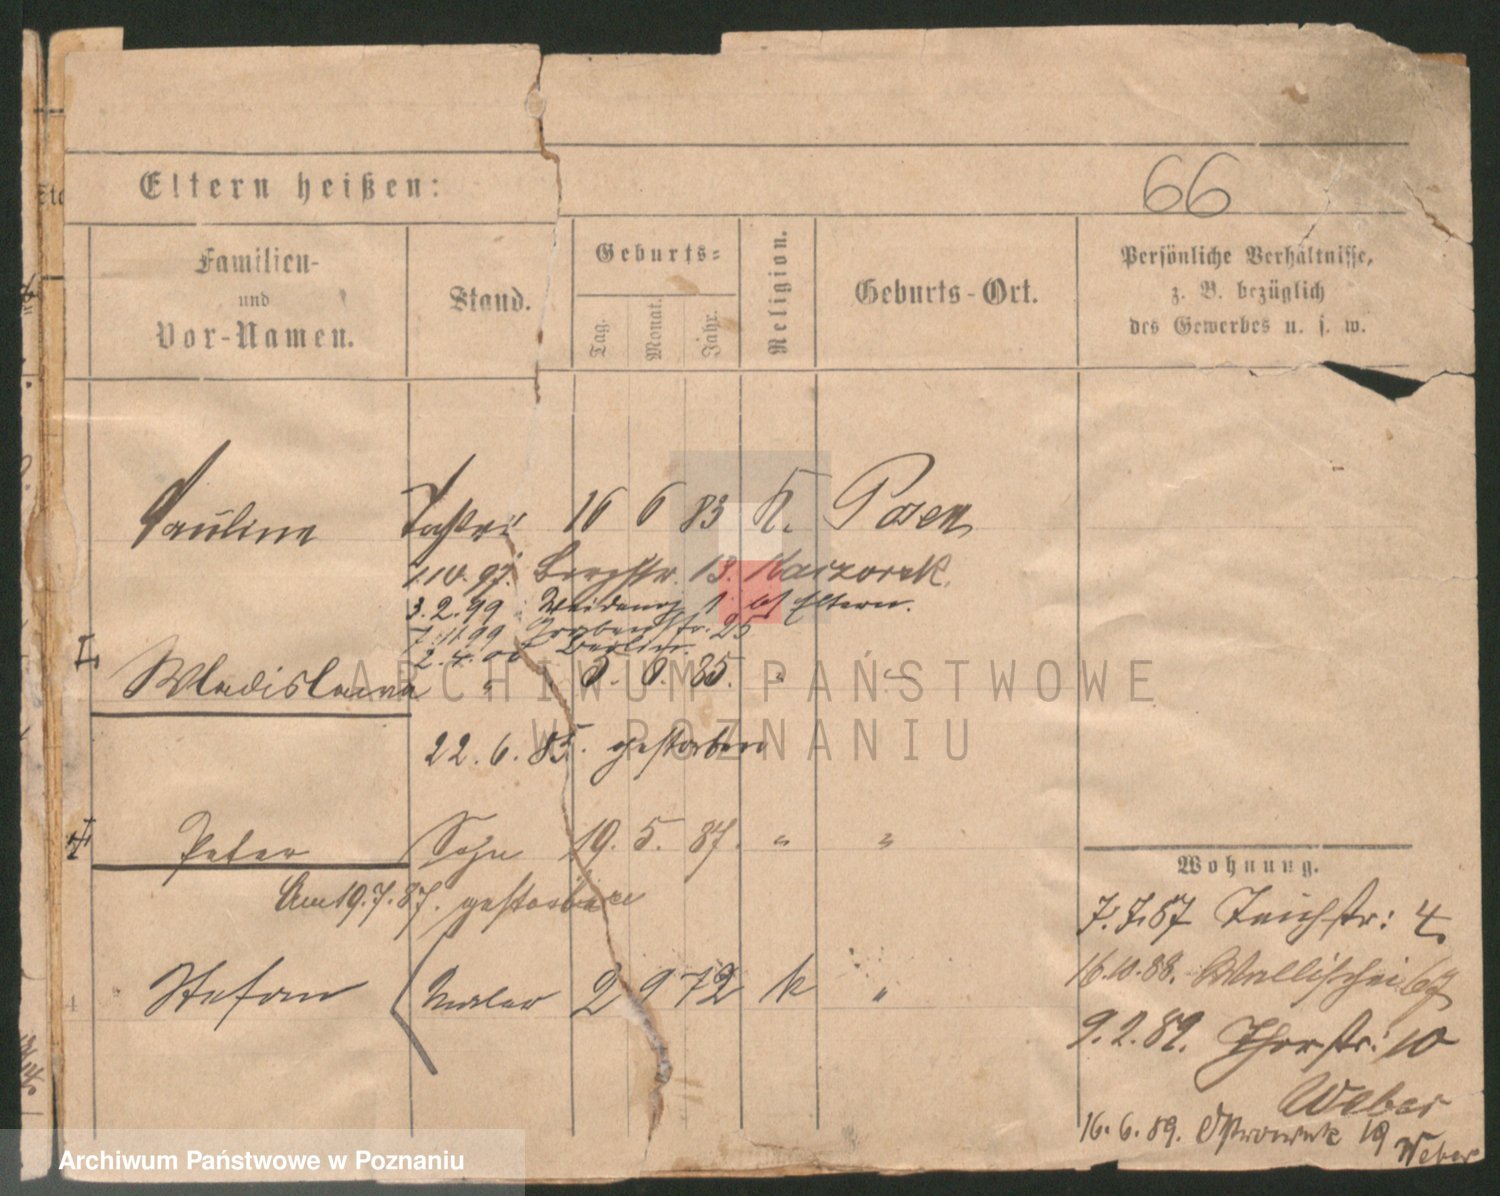 66
Eltern heißen:
Familien-
und
Vor-Namen.
Stand.
Geburts-
Tag.
Monat.
Jahr.
Religion.
Geburts-Ort.
Persönliche Verhältnisse,
z. B. bezüglich
des Gewerbes u. s. w.
Pauline 16 6 83 K. Posen
1.10.97. Bergstr. 13. Kaczorek.
3.2.99 1 Eltern.
7.11.99 Grabenstr. 25
2.4.00 Berlin.
Wladislawa " 5. 6. 85. " "
22.6.85. gestorben
Peter Sohn 19. 5. 87. " "
Am 19.7.87. gestorben
Stefan Maler 2 9 72 k "
Wohnung.
7.7.87 Teichstr: 4
16.10.88. Wallischei 67
9.2.89. Thorstr: 10
Weber
16.6.89. Ostrowek 19
Weber
ARCHIWUM PAŃSTWOWE
W POZNANIU
Archiwum Państwowe w Poznaniu